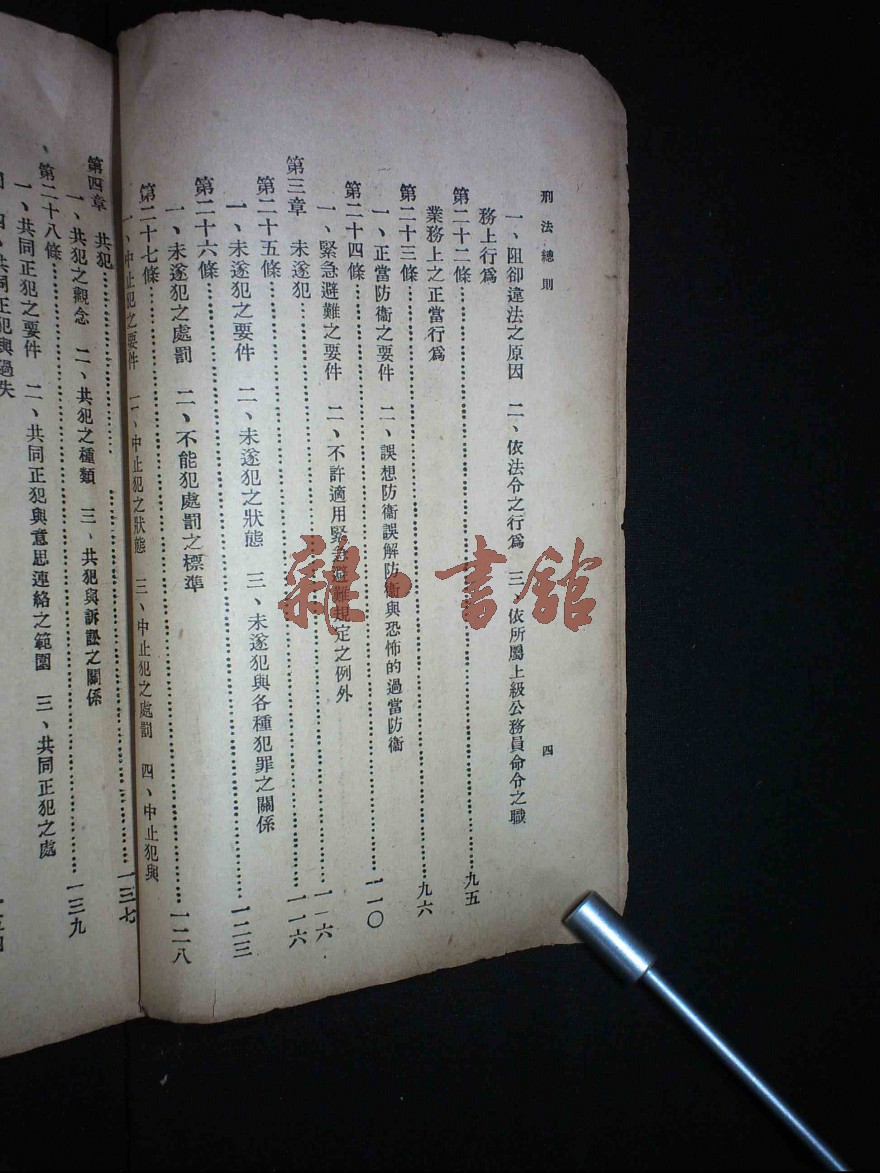 刑法總則
四
一、阻卻違法之原因 二、依法令之行爲 三、依所屬上級公務員命令之職
務上行爲
第二十二條……九五
業務上之正當行爲
第二十三條……九六
一、正當防衞之要件 二、誤想防衞誤解防衞與恐怖的過當防衞
第二十四條……一一〇
一、緊急避難之要件 二、不許適用緊急避難規定之例外
第三章 未遂犯……一一六
第二十五條……一一六
一、未遂犯之要件 二、未遂犯之狀態 三、未遂犯與各種犯罪之關係
第二十六條……一二三
一、未遂犯之處罰 二、不能犯處罰之標準
第二十七條……一二八
一、中止犯之要件 二、中止犯之狀態 三、中止犯之處罰 四、中止犯與
第四章 共犯……一三七
一、共犯之觀念 二、共犯之種類 三、共犯與訴訟之關係
第二十八條……一三九
一、共同正犯之要件 二、共同正犯與意思連絡之範圍 三、共同正犯之處
四、共同正犯與過失
雜·書館